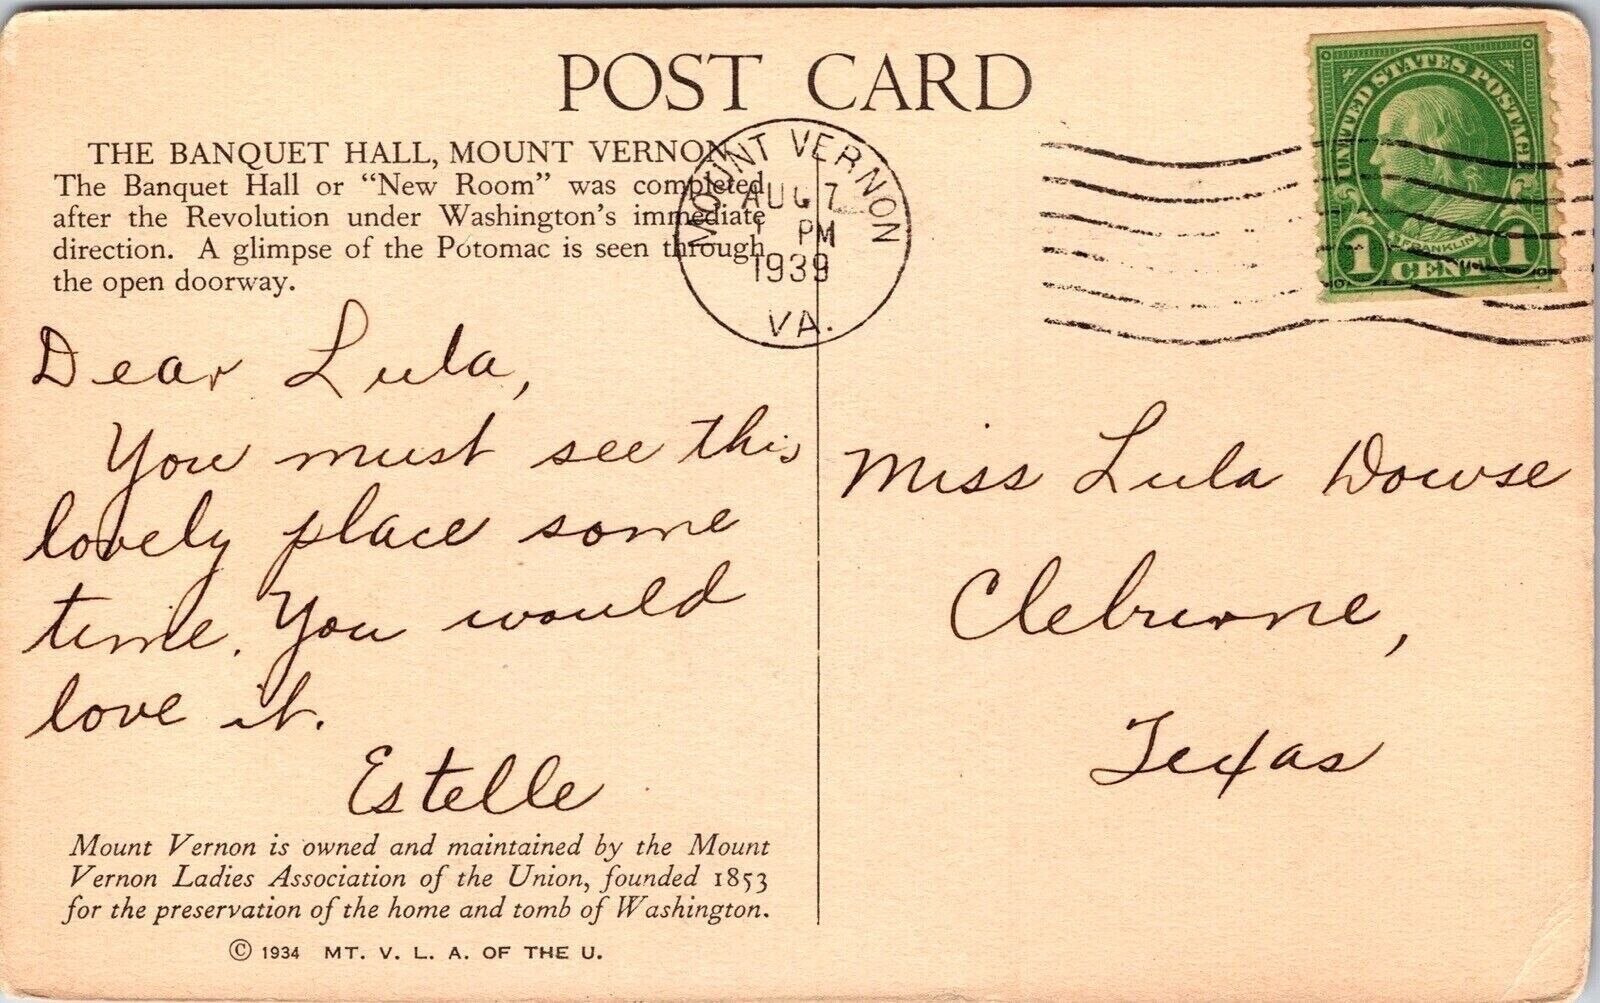 POST CARD
THE BANQUET HALL, MOUNT VERNON
The Banquet Hall or “New Room” was completed
after the Revolution under Washington's immediate
direction. A glimpse of the Potomac is seen through
the open doorway.
MOUNT VERNON
AUG 7
1 PM
1939
VA.
UNITED STATES POSTAGE
FRANKLIN
1 CENT 1
Dear Lula,
You must see this
lovely place some
time. You would
love it.
Estelle
Miss Lula Dowse
Cleburne,
Texas
Mount Vernon is owned and maintained by the Mount
Vernon Ladies Association of the Union, founded 1853
for the preservation of the home and tomb of Washington.
© 1934 MT. V. L. A. OF THE U.